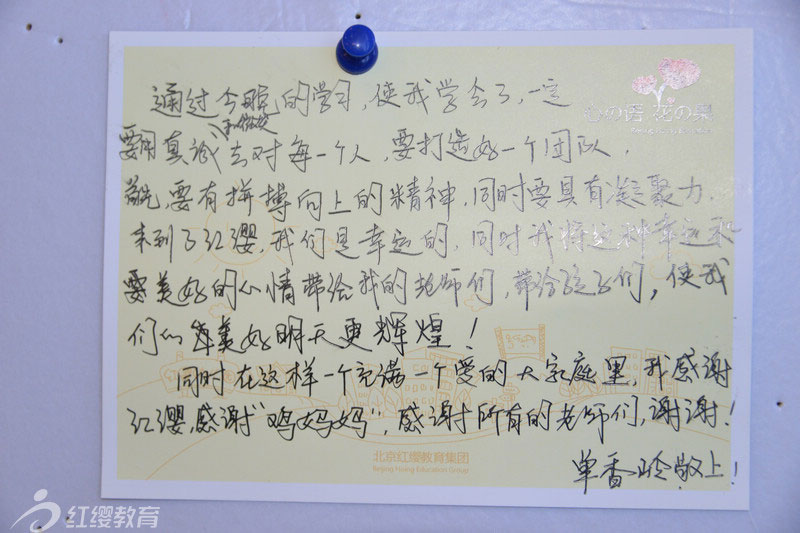 通过今晚的学习,使我学会了,一定
要用真诚和微笑去对每一个人,要打造好一个团队,
首先,要有拼搏向上的精神,同时要具有凝聚力.
来到了红缨,我们是幸运的,同时我将这种幸运和
要美好的心情带给我的老师们,带给孩子们,使我
们的美好明天更辉煌!
同时在这样一个充满一个爱的大家庭里,我感谢
红缨,感谢“鸡妈妈”,感谢所有的老师们,谢谢!
单香玲敬上!
心の语 花の果
北京红缨教育集团
Beijing Hoing Education Group
红缨教育